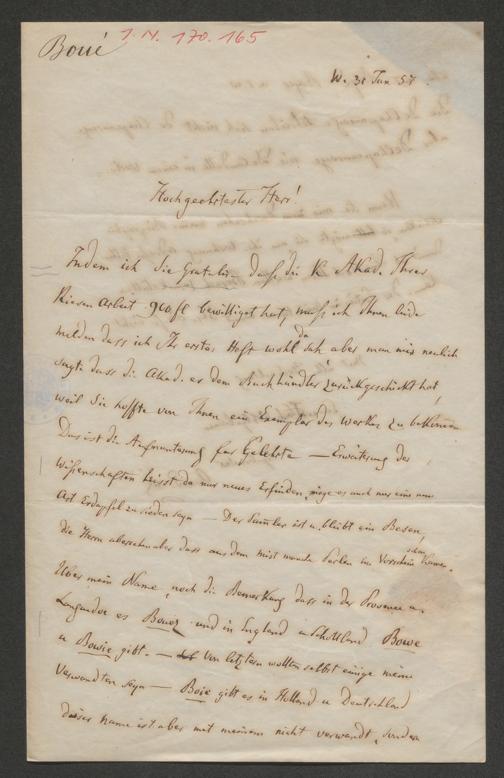 Boué
I. N. 170.165
W. 31 Jan 57.
Hochgeehrtester Herr!
Indem ich Sie Gratulire dass die K. Akad. Ihrer
Riesen Arbeit 900 fl bewilliget hat, muss ich Ihnen
melden dass ich Ihr erstes Heft wohl da sah, aber man mir neulich
sagte dass die Akad. es dem Buchhändler zurückgeschickt hat,
weil Sie hoffte von Ihnen ein Exemplar des Werkes zu bekommen
Das ist die Aufmunterung für Gelehrte — Erweiterung der
Wissenschaften heisst da nur neues Erfinden, möge es auch nur eine neue
Art Erdäpfel zu sieden seyn — Der Samler ist u. bleibt ein Besen,
die Herrn aber dass aus dem mist manche Perlen im Vorschein schon kamen.
Uber mein Name, noch die Bemerkung dass in der Provence u.
Languedoc es Bouez und in England u Schottland Bowe
u Bowie gibt. — Von letztern wollten selbst einige meine
Verwandten seyn — Boie gibt es in Holland u Deutschland
dieser Name ist aber mit meinem nicht verwandt, sondern